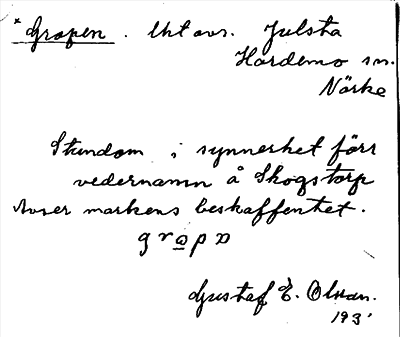 *Gropen. Ukt avs. Julsta
Hardemo sn.
Närke
Stundom i synnerhet förr
vedernamn å Skogstorp
Avser markens beskaffenhet.
grop
Gustaf E. Olsson.
193